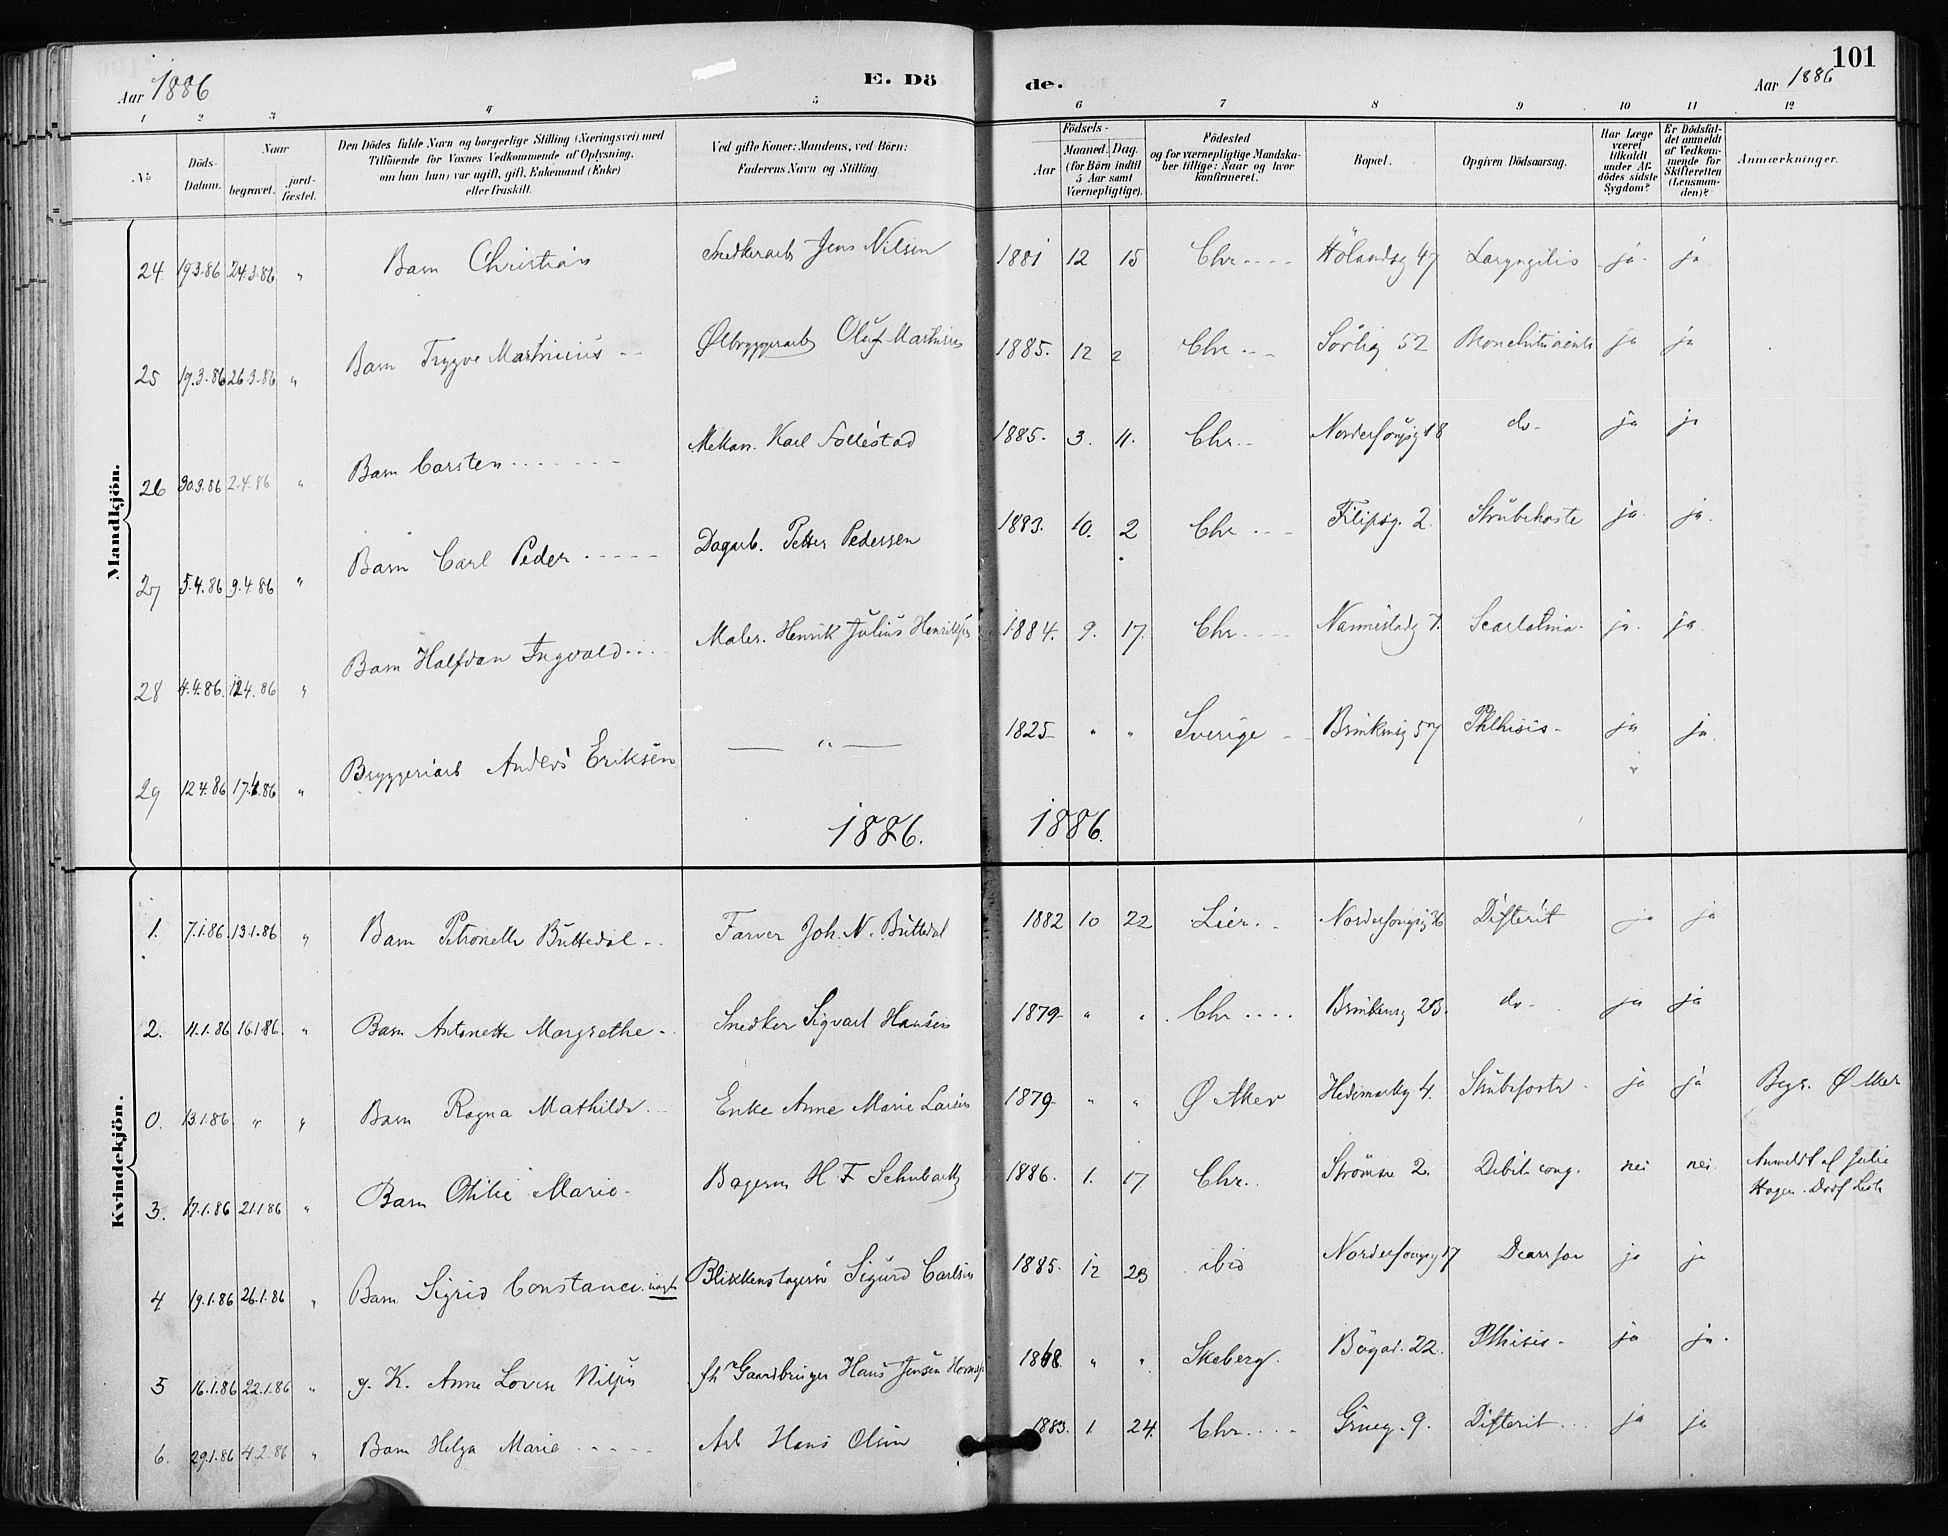 Aar 1886 E. Dö
de. Aar 1886 101
1 2 3 4 5 6 7 8 9 10 11 12
No Döds-Datum. Naar begravet. jord-fæstet. Den Dödes fulde Navn og borgerlige Stilling (Næringsvei) med Tilföiende for Voxnes Vedkommende af Oplysning, om han (hun) var ugift, gift, Enkemand (Enke) eller fraskilt. Ved gifte Koner: Mandens, ved Börn: Faderens Navn og Stilling. Födsels- Aar Maaned. Dag. (for Börn indtil 5 Aar samt Værnepligtige). Födested og for værnepligtige Mandskaber tillige: Naar og hvor konfirmeret. Bopæl. Opgiven Dödsaarsag. Har Læge været tilkaldt under Afdödes sidste Sygdom? Er Dödsfaldet anmeldt af Vedkommende for Skifteretten (Lensmanden)? Anmærkninger.
Mandkjön.
24. 19.3.86 24.3.86 " Barn Christian Snedkerarb Jens Nilsen 1881 12 15 Chr.... Hölandsg 47 Laryngitis ja. ja
25 19.3.86 26.3.86 " Barn Trygve Martinius -- Ølbryggerarb Oluf Martinsen 1885. 12 2 Chr... Sörlig 52 ja ja
26 30.3.86 2.4.86 " Barn Carsten....... Mekan. Karl Follestad 1885. 3. 11. Chr.. 18 do- ja ja
27 5.4.86 9.4.86 " Barn Carl Peder ----- Dagarb. Petter Pedersen 1883. 10. 2 Chr... Filipsg. 2. Strubehoste ja. ja.
28 4.4.86. 12.4.86 " Barn Halfdan Ingvald... Maler. Henrik Julius Henriksen 1884. 9. 17. Chr.... Nannestadg 7. Scarlatina. ja. ja.
29 12.4.86 17.4.86 " Bryggeriarb Anders Eriksen — " — 1825 " " Sverige - Brinkensg 57 Phthisis- ja ja.
1886. 1886.
Kvindekjön.
1. 7.1.86. 13.1.86 " Barn Petronelle Buttedal -- Farver Joh. N. Buttedal 1882 10 22 Lier.. 36 Difterit ja ja
2. 11.1.86 16.1.86. " Barn Antonette Margrethe-. Snedker Sigvart Hansen 1879- " " Chr.... Brinkensg 23. do- ja ja
0. 13.1.86. " " Barn Ragna Mathilde... Enke Anne Marie Larsen 1879- " " Ø Aker Hedemarksg 4. ja ja Begr. Ø Aker
3. 17.1.86 21.1.86 " Barn Otilie Marie- H F 1886. 1. 17 Chr.. Strömsv 2. Debilit. cong. nei nei. Anmeldt af Julie Hagen.
4 19.1.86 26.1.86 " Barn Sigrid Constance. Blikkenslagersv Sigurd Carlsen 1885. 12 23 ibid 17 ja ja
5 16.1.86 22.1.86 " g. K. Anne Lovise Nilsen Hans Jensen 1868 " " Skeberg. Bögad. 22. Phthisis- ja ja.
6. 29.1.86 4.2.86 " Barn Helga Marie ----- Arb Hans Olsen 1883. 1. 24. Chr.... Grüneg. 9. Difterit... ja ja